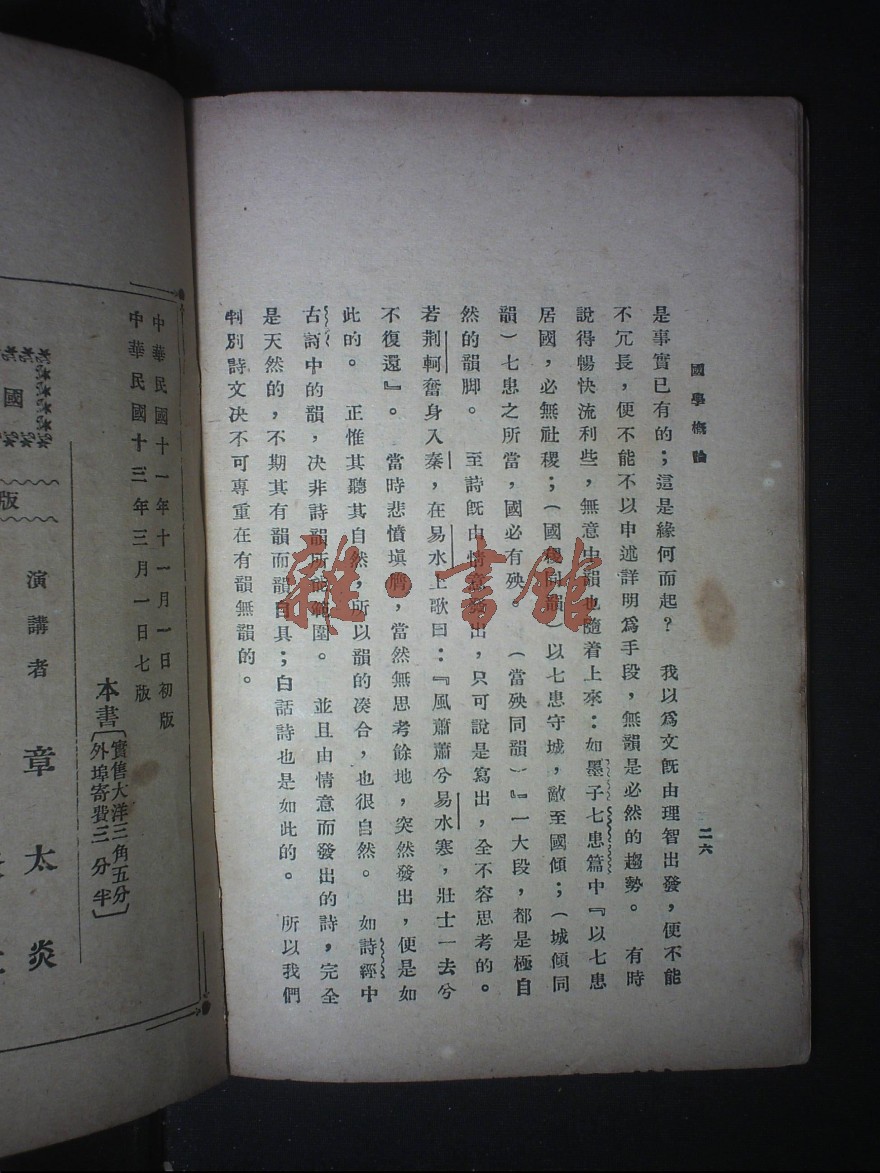 國學概論
二六
是事實已有的；這是緣何而起？　我以爲文旣由理智出發，便不能
不冗長，便不能不以申述詳明爲手段，無韻是必然的趨勢。　有時
說得暢快流利些，無意中韻也隨着上來：如墨子七患篇中『以七患
居國，必無社稷；（國稷同韻）以七患守城，敵至國傾；（城傾同
韻）七患之所當，國必有殃。　（當殃同韻）』一大段，都是極自
然的韻脚。　至詩旣由情意發出，只可說是寫出，全不容思考的。
若荆軻奮身入秦，在易水上歌曰：『風蕭蕭兮易水寒，壯士一去兮
不復還』。　當時悲憤塡膺，當然無思考餘地，突然發出，便是如
此的。　正惟其聽其自然，所以韻的凑合，也很自然。　如詩經中
古詩中的韻，决非詩韻所能範圍。　並且由情意而發出的詩，完全
是天然的，不期其有韻而韻自具；白話詩也是如此的。　所以我們
判別詩文决不可專重在有韻無韻的。
中華民國十一年十一月一日初版
中華民國十三年三月一日七版
本書〔實售大洋三角五分
外埠寄費三分半〕
演講者　章太炎
國
版
雜·書館